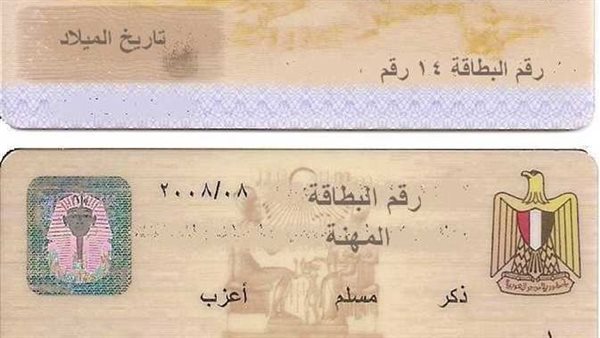 تاريخ الميلاد
رقم البطاقة ١٤ رقم
رقم البطاقة ٢٠٠٨/٠٨
المهنة
ذكر مسلم أعزب